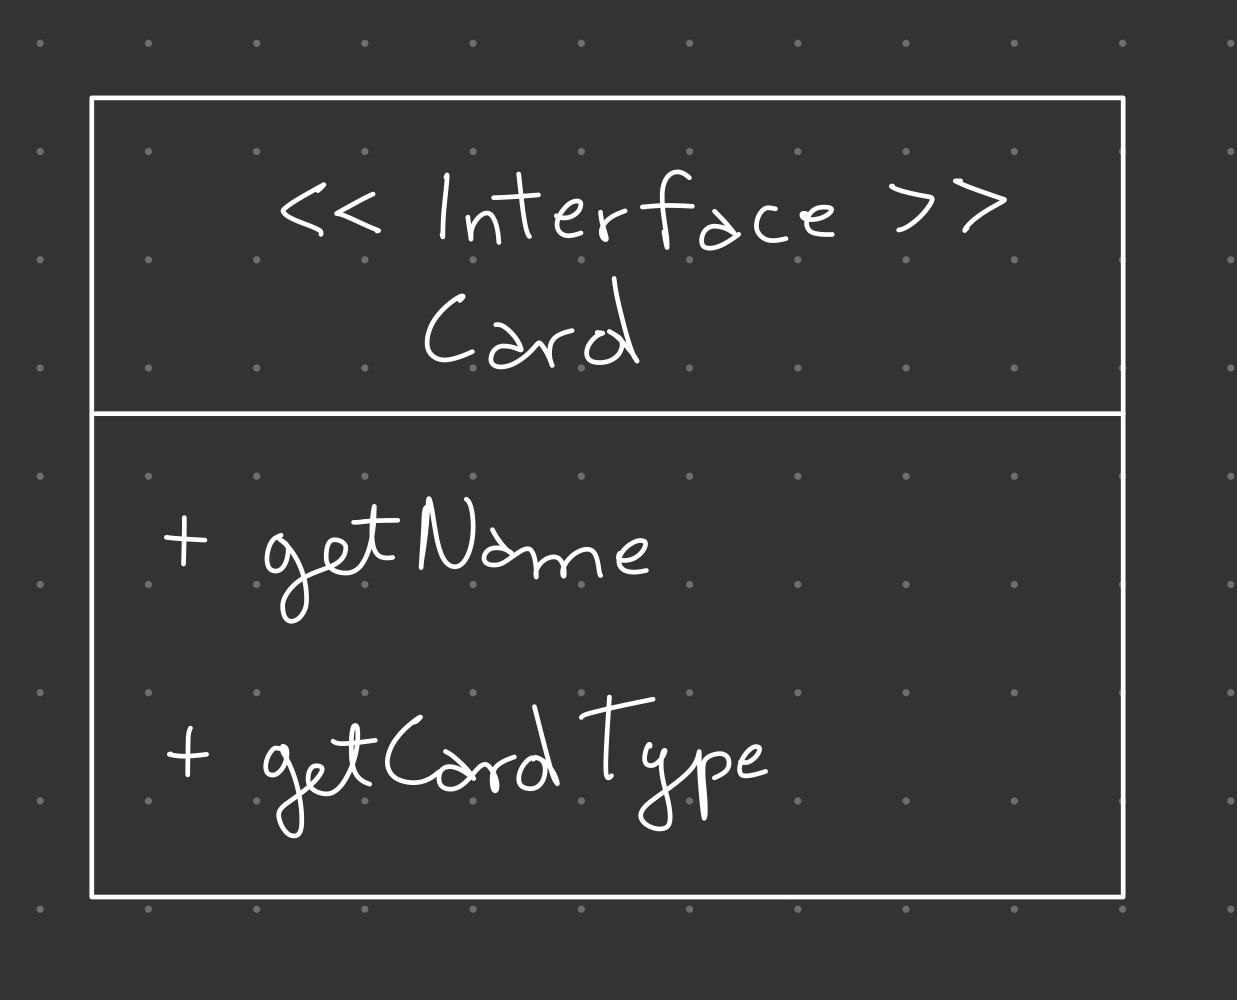 << Interface >>
Card
+ getName
+ getCardType